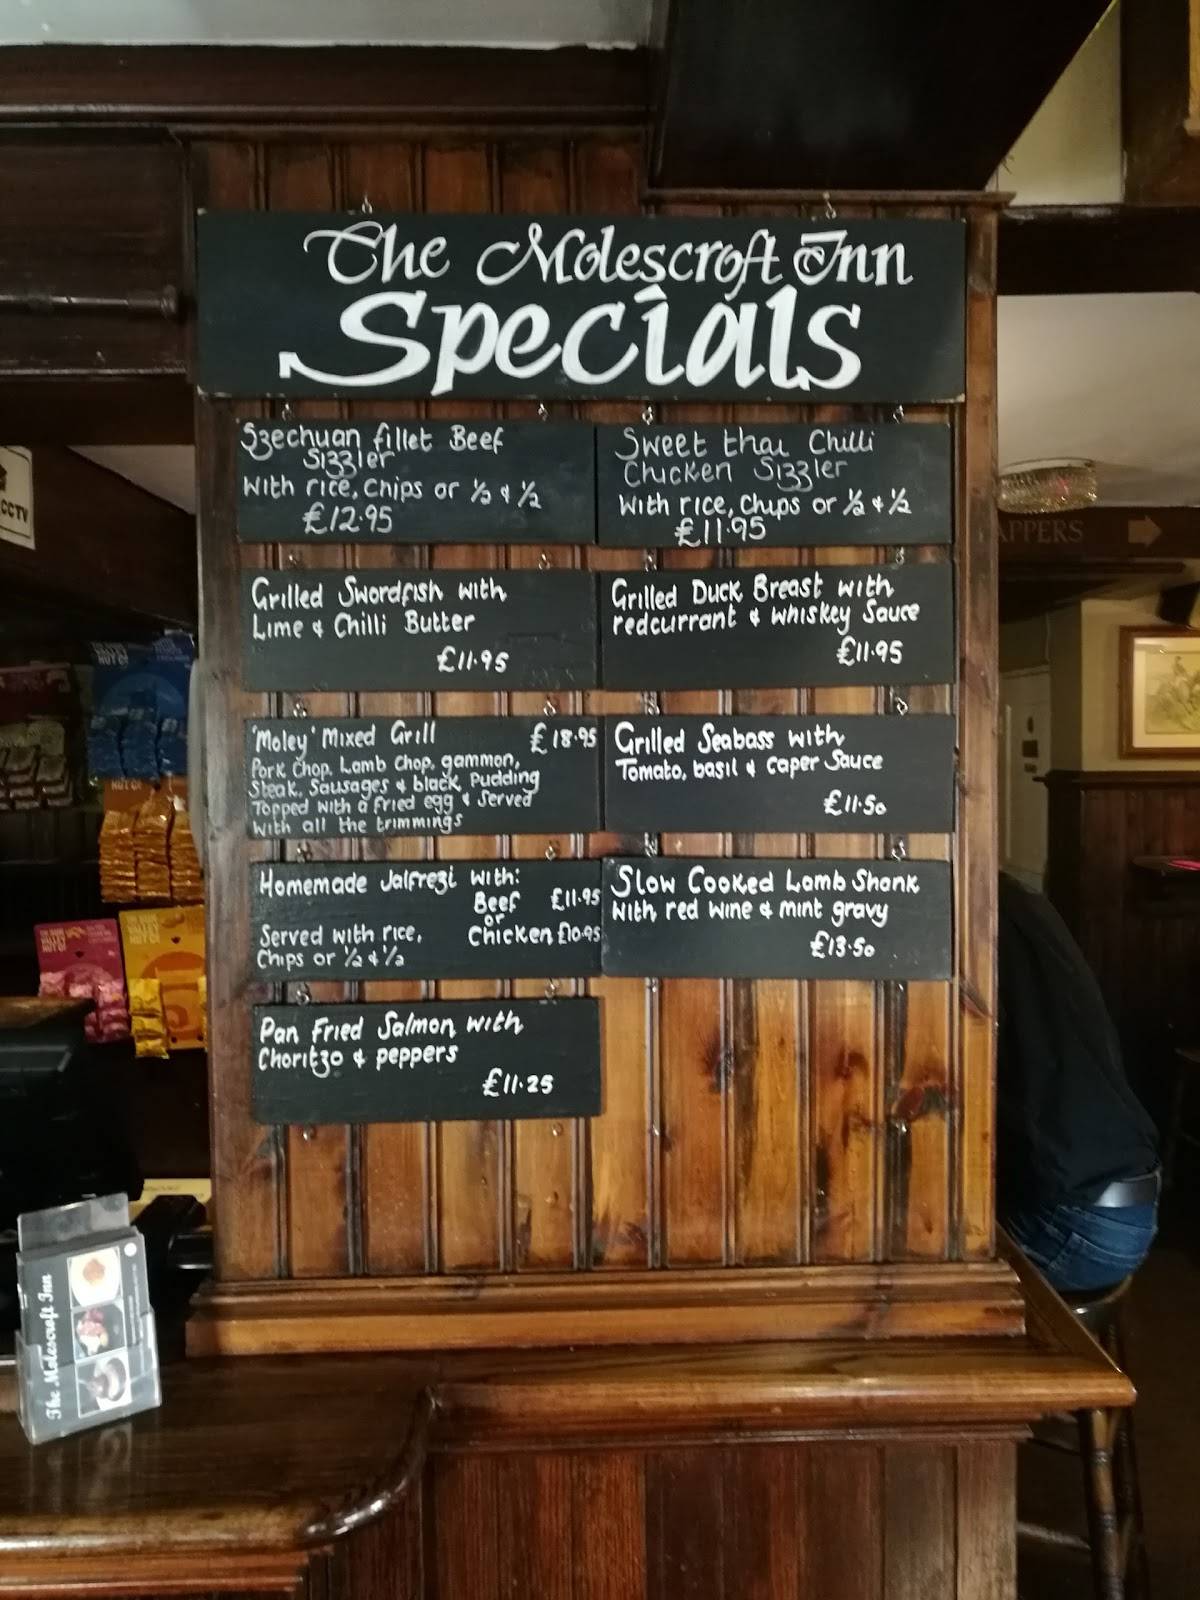 The Molescroft Inn
Specials
Szechuan fillet Beef
Sizzler
With rice, chips or ½ & ½
£12.95
Sweet thai Chilli
Chicken Sizzler
With rice, chips or ½ & ½
£11.95
Grilled Swordfish with
Lime & Chilli Butter
£11.95
Grilled Duck Breast with
redcurrant & whiskey Sauce
£11.95
'Moley' Mixed Grill £18.95
Pork Chop, Lamb chop, gammon,
Steak, Sausages & black Pudding
Topped with a fried egg & Served
With all the trimmings
Grilled Seabass with
Tomato, basil & caper Sauce
£11.50
Homemade Jalfrezi with:
Beef £11.95
or
Chicken £10.95
Served with rice,
Chips or ½ & ½
Slow Cooked Lamb Shank
With red wine & mint gravy
£13.50
Pan Fried Salmon with
Choritzo & peppers
£11.25
CCTV
APPERS
The Molescroft Inn